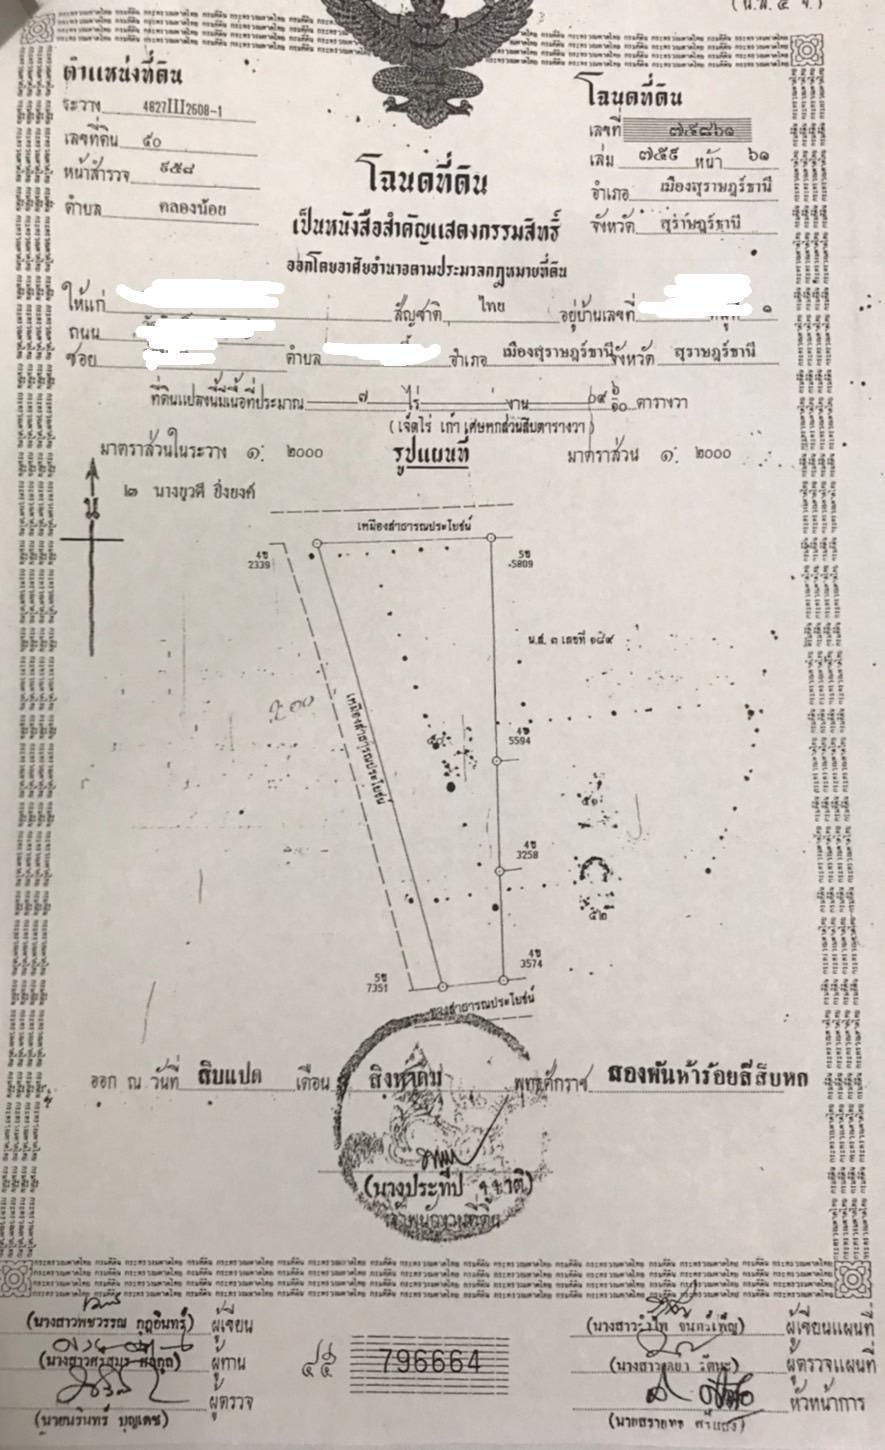 (น.ส. ๔ จ.)
ตำแหน่งที่ดิน
ระวาง 4827III2608-1
เลขที่ดิน ๕๐
หน้าสำรวจ ๕๕๘
ตำบล คลองน้อย
โฉนดที่ดิน
เลขที่ ๗๕๘๖๑
เล่ม ๗๕๙ หน้า ๖๑
อำเภอ เมืองสุราษฎร์ธานี
จังหวัด สุราษฎร์ธานี
โฉนดที่ดิน
เป็นหนังสือสำคัญแสดงกรรมสิทธิ์
ออกโดยอาศัยอำนาจตามประมวลกฎหมายที่ดิน
ให้แก่ สัญชาติ ไทย อยู่บ้านเลขที่ หมู่ที่ ๑
ถนน
ซอย ตำบล อำเภอ เมืองสุราษฎร์ธานี จังหวัด สุราษฎร์ธานี
ที่ดินแปลงนี้มีเนื้อที่ประมาณ ๗ ไร่ งาน ๐๙ ๖/๑๐ ตารางวา
(เจ็ดไร่ เก้า เศษหกส่วนสิบตารางวา)
มาตราส่วนในระวาง ๑: ๒๐๐๐ รูปแผนที่ มาตราส่วน ๑: ๒๐๐๐
น
๒ นางยุวดี ยิ่งยงค์
เหมืองสาธารณประโยชน์
4ข
2339
5ข
5809
น.ส. ๓ เลขที่ ๑๘๙
๒๐๐
เหมืองสาธารณประโยชน์
4ข
5594
๕๐
๕๑
4ข
3258
๕๒
4ข
3574
5ข
7351
ทางสาธารณประโยชน์
ออก ณ วันที่ สิบแปด เดือน สิงหาคม พุทธศักราช สองพันห้าร้อยสี่สิบหก
(นางประทีป
เจ้าพนักงานที่ดิน
(นางสาวพชวรรณ กุฎอินทร์) ผู้เขียน
ผู้ทาน
(นายนรินทร์ บุญเดช) ผู้ตรวจ
796664
ผู้เขียนแผนที่
ผู้ตรวจแผนที่
หัวหน้าการ